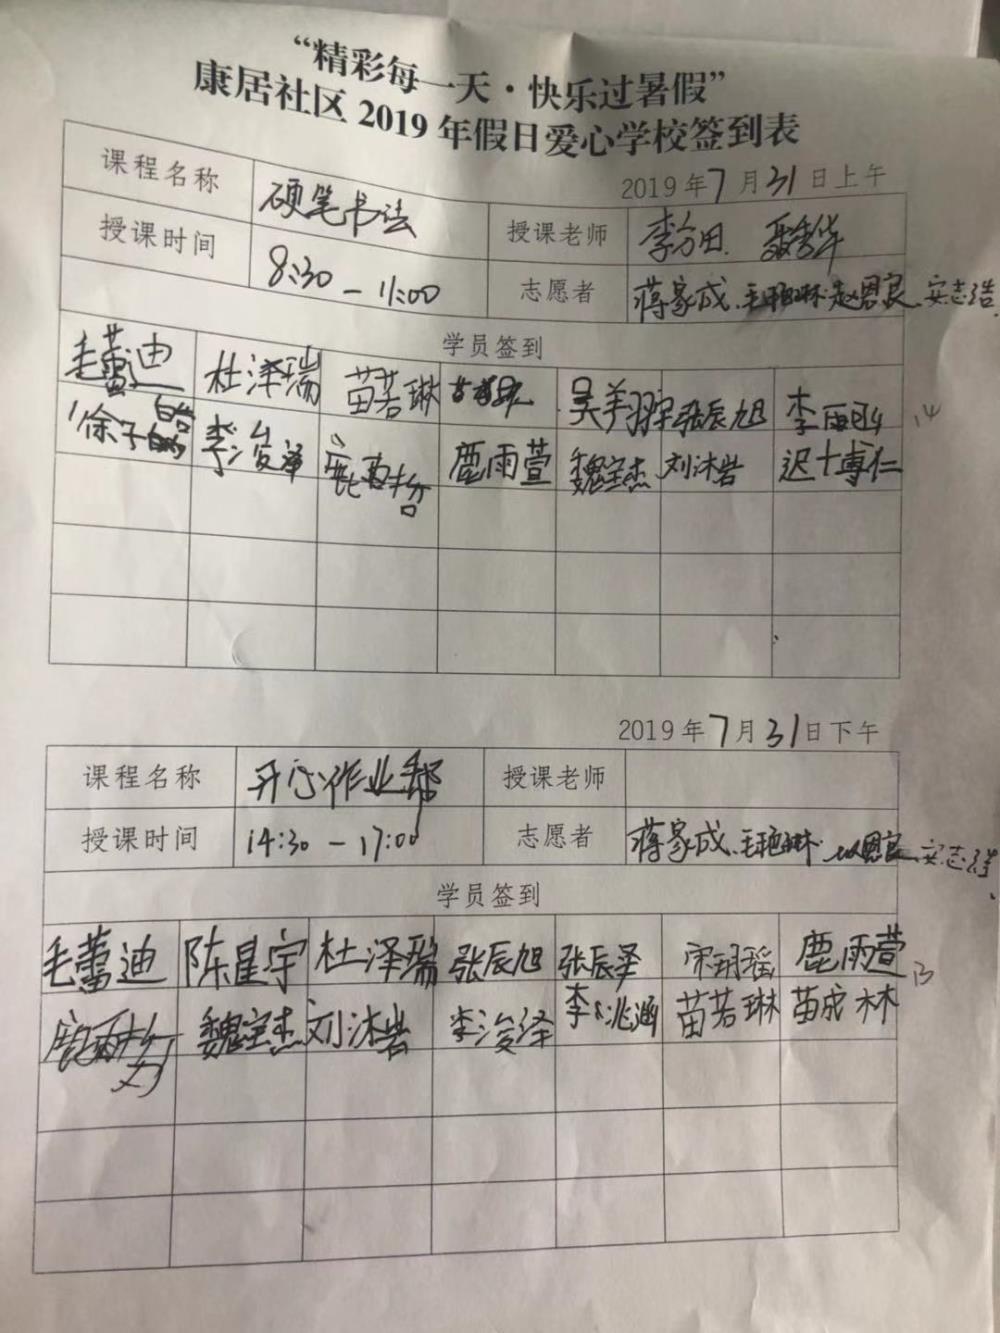 “精彩每一天·快乐过暑假”
康居社区 2019 年假日爱心学校签到表
2019年7月31日上午
课程名称 硬笔书法 授课老师 李方田
授课时间 8:30-11:00 志愿者 蒋家成、毛艳琳、赵恩良、安志浩
学员签到
毛蕾迪 杜泽瑞 苗若琳 吴羊羽 张辰旭 李雨 14
徐子皓 李浚泽 鹿雨萱 魏宝杰 刘沐岩 迟博仁
2019年7月31日下午
课程名称 开心作业帮 授课老师
授课时间 14:30-17:00 志愿者 蒋家成、毛艳琳、恩良、安志浩、
学员签到
毛蕾迪 陈星宇 杜泽瑞 张辰旭 张辰泽 宋玥瑶 鹿雨萱 13
魏宝杰 刘沐岩 李浚泽 李洮涵 苗若琳 苗成林